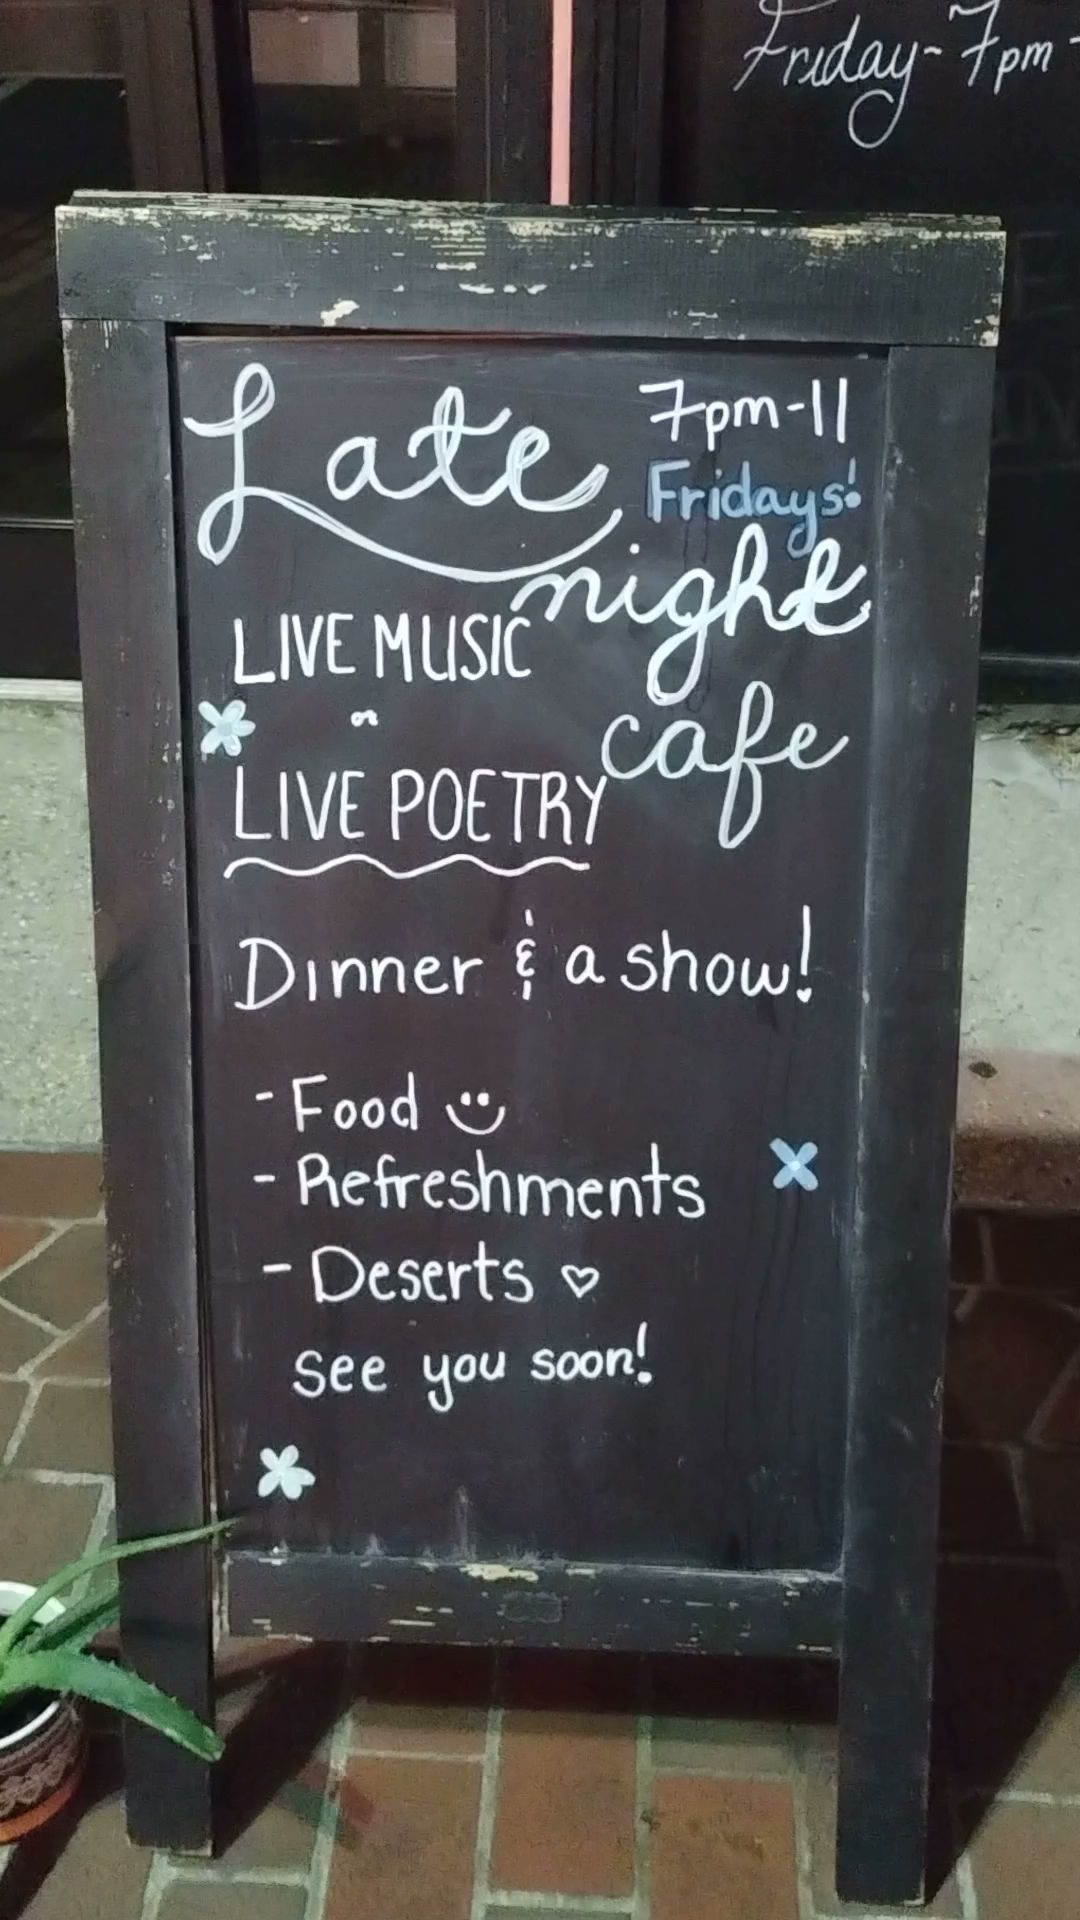 Friday~7pm-
Late
7pm-11
Fridays!
night
cafe
LIVE MUSIC
or
LIVE POETRY
Dinner & a show!
- Food
- Refreshments
- Deserts ♡
see you soon!